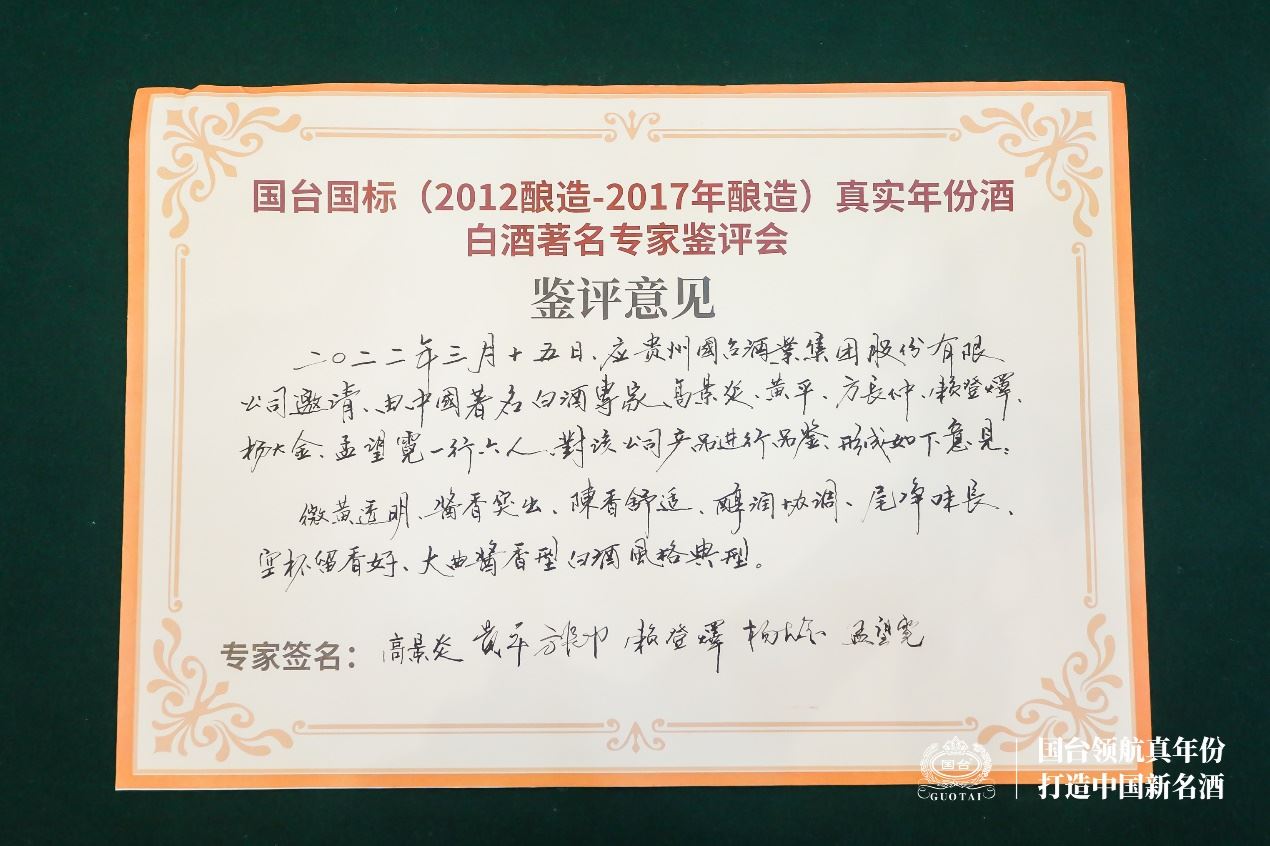 国台国标（2012酿造-2017年酿造）真实年份酒
白酒著名专家鉴评会
鉴评意见
二〇二二年三月十五日、应贵州國台酒業集团股份有限
公司邀请、由中國著名白酒專家、高景炎、黄平、方長仲、賴登燡、
杨大金、孟望霓一行六人、對该公司产品进行品鉴、形成如下意見：
微黄透明、醬香突出、陳香舒适、醇润协调、尾净味長、
空杯留香好、大曲醬香型白酒風格典型。
专家签名：高景炎 黄平 方長仲 賴登燡 杨大金 孟望霓
国台
GUOTAI
国台领航真年份
打造中国新名酒